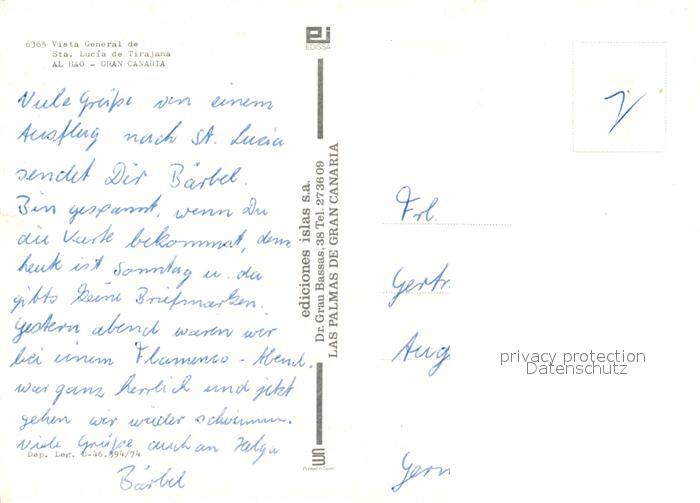 6365 Vista General de
Sta. Lucía de Tirajana
AL HAO - GRAN CANARIA
Viele Grüße von einem
Ausflug nach St. Lucia
sendet Dir Bärbel.
Bin gespannt, wenn Du
die Karte bekommst, denn
heute ist Sonntag u. da
gibts keine Briefmarken.
Gestern abend waren wir
bei einem Flamenco-Abend.
war ganz herrlich und jetzt
gehen wir wieder schwimmen.
Viele Grüße auch an Helga
Bärbel
Dep. Leg. B-46.894/74
EDISSA
ediciones islas s.a.
Dr. Grau Bassas, 38 Tel. 273609
LAS PALMAS DE GRAN CANARIA
Printed in Spain
Frl.
Gertr.
Aug
Gern
privacy protection
Datenschutz